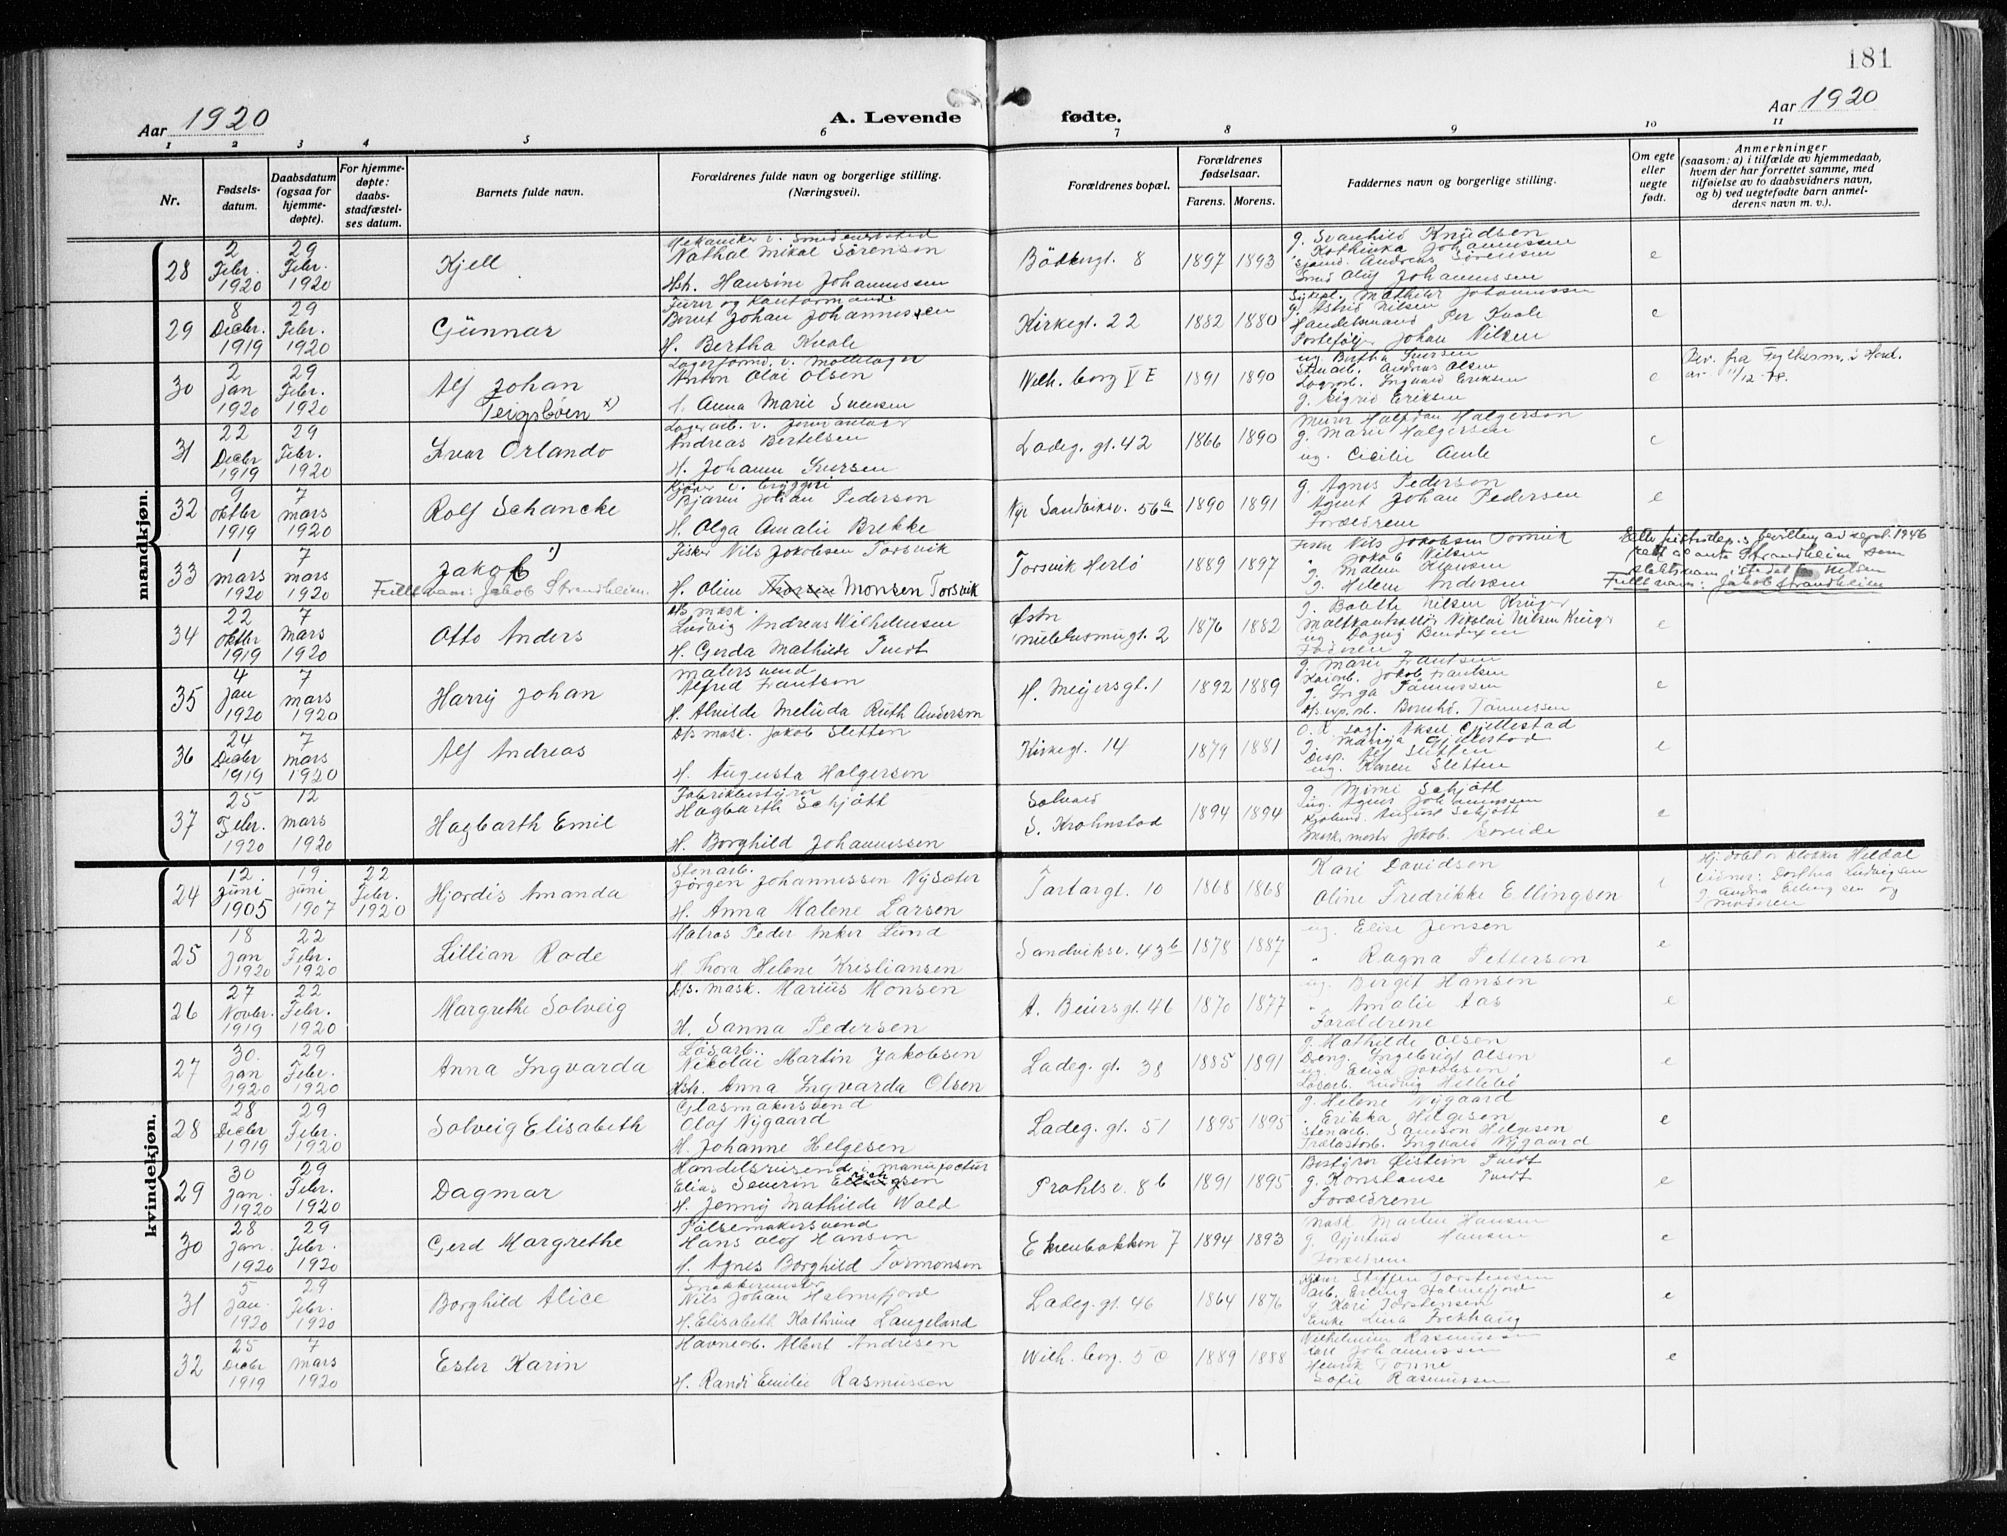 181
Aar 1920
A. Levende fødte.
Aar 1920
1 2 3 4 5 6 7 8 9 10 11
Nr.
Fødselsdatum.
Daabsdatum (ogsaa for hjemmedøpte).
For hjemmedøpte: daabsstadfæstelses datum.
Barnets fulde navn.
Forældrenes fulde navn og borgerlige stilling. (Næringsvei).
Forældrenes bopæl.
Forældrenes fødselsaar.
Farens. Morens.
Faddernes navn og borgerlige stilling.
Om egte eller uegte født.
Anmerkninger
(saasom: a) i tilfælde av hjemmedaab,
hvem der har forrettet samme, med
tilføielse av to daabsvidners navn,
og b) ved uegtefødte barn anmelderens navn m. v.).
mandkjøn.
28 2 Febr. 1920 29 Febr. 1920 Kjell
Nathal Mikal Sörenson
Hst. Hansine Johannessen
Bödkergt. 8 1897 1893
g. Svanhild Knudsen
Kathinka Johannessen
Sjömd. Andreas Sörensen
Smed Oluf Johannessen
e
29 8 Decbr. 1919 29 Febr. 1920 Günnar
Bernt Johan Johannessen
H. Bertha Kvale
Kirkegt. 22 1882 1880
Sykepl. Mathilde Johannessen
g. Astrid Nilsen
Handelsmand Per Kvale
Portefølj. Johan Nilsen
e
30 2 Jan 1920 29 Febr. 1920 Alf Johan
Teigsbøen x)
Lagerformd. v. Maltelager
Anton Olai Olsen
H. Anna Marie Svensen
Wilh. borg V E 1891 1890
ug. Bertha Iversen
Stenarb. Andreas Olsen
Lagerarb. Ingvald Eriksen
g. Sigrid Eriksen
e
Bev. fra Fylkesm. i Hord.
av 11/12-78.
31 22 Decbr 1919 29 Febr. 1920 Ivar Orlando
Andreas Bertelsen
H. Johanne Iversen
Ladeg. gt. 42 1866 1890
Murer Halfdan Halgerson
g. Marie Halgersen
ug. Cecilie Amle
e
32 9 Oktbr 1919 7 mars 1920 Rolf Schancke
Kjører v. bryggeri
Bjarne Johan Pederson
H. Olga Amalie Brekke
Nye Sandviksv. 56a 1890 1891
g. Agnes Pederson
Agent Johan Pedersen
Forældrene
e
33 1 mars 1920 7 mars 1920 Jakob 1)
Fullt navn: Jakob Strandheim.
Fisker Nils Jakobsen Torsvik
H. Oline Thorsen Monsen Torsvik
Torsvik Herlö 1889 1897
Fisker Nils Jakobsen Torsvik
" Jakob Nilsen
g. Malene Hansen
g. Helene Andersen
Etter justisdep.s bevilling av sept. 1946
rett til anta Strandheim som
slektsnavn istedet for Nilsen
Fullt navn: Jakob Strandheim
34 22 Oktbr 1919 7 Mars 1920 Otto Anders
D/s mask.
Ludvig Andreas Wilhelmsen
H. Gerda Mathilde Tvedt
Østre Mulehusmugt. 2 1876 1882
g. Bolette Nilsen Krüger
Maltkontrollør Nikolai Nilsen Krüger
ug. Dagny Bendixen
Faderen
e
35 4 Jan 1920 7 mars 1920 Harry Johan
malersvend
Alfred Frantson
H. Alvilde Melida Ruth Anderson
H. Meyersgt. 1 1892 1889
g. Marie Frantsen
Kaiarb. Jakob Frantsen
g. Inga Tönnessen
D/s.exp.arb. Bernh. Tönnessen
e
36 24 Decbr 1919 7 mars 1920 Alf Andreas
D/s mask. Jakob Sletten
H. Augusta Halgerson
Kirkegt. 14 1879 1881
O.r. sagf. Aksel Gjellestad
g. Maryja Gjellestad
Disp. Alf Sletten
ug. Karen Sletten
e
37 25 Febr. 1920 12 mars 1920 Hagbarth Emil
Fabrikbestyrer
Hagbarth Schjött
H. Borghild Johannessen
Solvaid
S. Krohnstad 1894 1894
g. Mimi Schjött
ug. Agnes Johannessen
Kjøbmd. August Schjött
Mask.mester Jakob Soreide
e
kvindekjøn.
24 12 Juni 1905 19 Juni 1907 22 Febr. 1920 Hjordis Amanda
Stenarb.
Jørgen Johannessen Nysæter
H. Anna Malene Larsen
Tartargt. 10 1868 1868
Kari Davidsen
Oline Fredrikke Ellingsen
e
Hj. døbt v. klokker Heldal
Vidner: Dorthea Ludvigsen
g. Andrea Ellingsen og
moderen
25 18 Jan 1920 22 Febr. 1920 Lillian Rode
Matros Peder Anker Lund
H. Thora Helene Kristiansen
Sandviksv. 43b 1878 1887
ug. Elise Jensen
" Ragna Petterson
e
26 27 Novbr. 1919 22 Febr. 1920 Margrethe Solveig
D/s. mask. Marius Monsen
H. Sanna Pedersen
A. Beiersgt. 46 1870 1877
ug. Bergit Hansen
" Amalie Aas
Forældrene
e
27 30. Jan 1920 29 Febr. 1920 Anna Ingvarda
Løsarb.
Nikolai Martin Jakobsen
Hst. Anna Ingvarda Olsen
Ladeg. gt. 38 1885 1891
g. Mathilde Olson
Dreng. Ingebrigt Olson
ug. Elisa Jakobsen
Løsarb. Ludvig Hillebö
e
28 28 Decbr 1919 29 Febr. 1920 Solveig Elisabeth
Glasmakersvend
Olaf Nygaard
H. Johanne Helgesen
Ladeg. gt. 51 1895 1895
g. Helene Nygaard
. Erikka Helgesen
Stenarb. Samson Helgesen
Trælastarb. Ingvald Nygaard
e
29 30 Jan. 1920 29 Febr. 1920 Dagmar
Handelsreisende i manufactur
Elias Severin
H. Jenny Mathilde Wold
Prahlsv. 8b 1891 1895
Bestyrer Øistein Tvedt
g. Konstanse Tvedt
Forældrene
e
30 28 Jan. 1920 29 Febr. 1920 Gerd Margrethe
Pølsemakersvend
Hans Olof Hanson
H. Agnes Borghild Tormonsen
Ekrenbakken 7 1894 1893
Mask Morten Hansen
g. Gjertine Hansen
Forældrene
e
31 5 Jan. 1920 29 Febr. 1920 Borghild Alice
Snekkermester
Nils Johan Holmefjord
H. Elisabeth Kathrine Langeland
Ladeg. gt. 46 1864 1876
Kjører Steffen Torstensen
Arb. Erling Holmefjord
g. Kari Torstensen
Enke Lina Trekhaug
e
32 25 Decbr 1919 7 mars 1920 Ester Karin
Havnearb. Albert Andresen
H. Randi Emilie Rasmussen
Wilh. borg. 5 c 1889 1888
Wilhelmine Rasmussen
Karl Johannessen
Henrik Tonne
Sofie Rasmussen
e